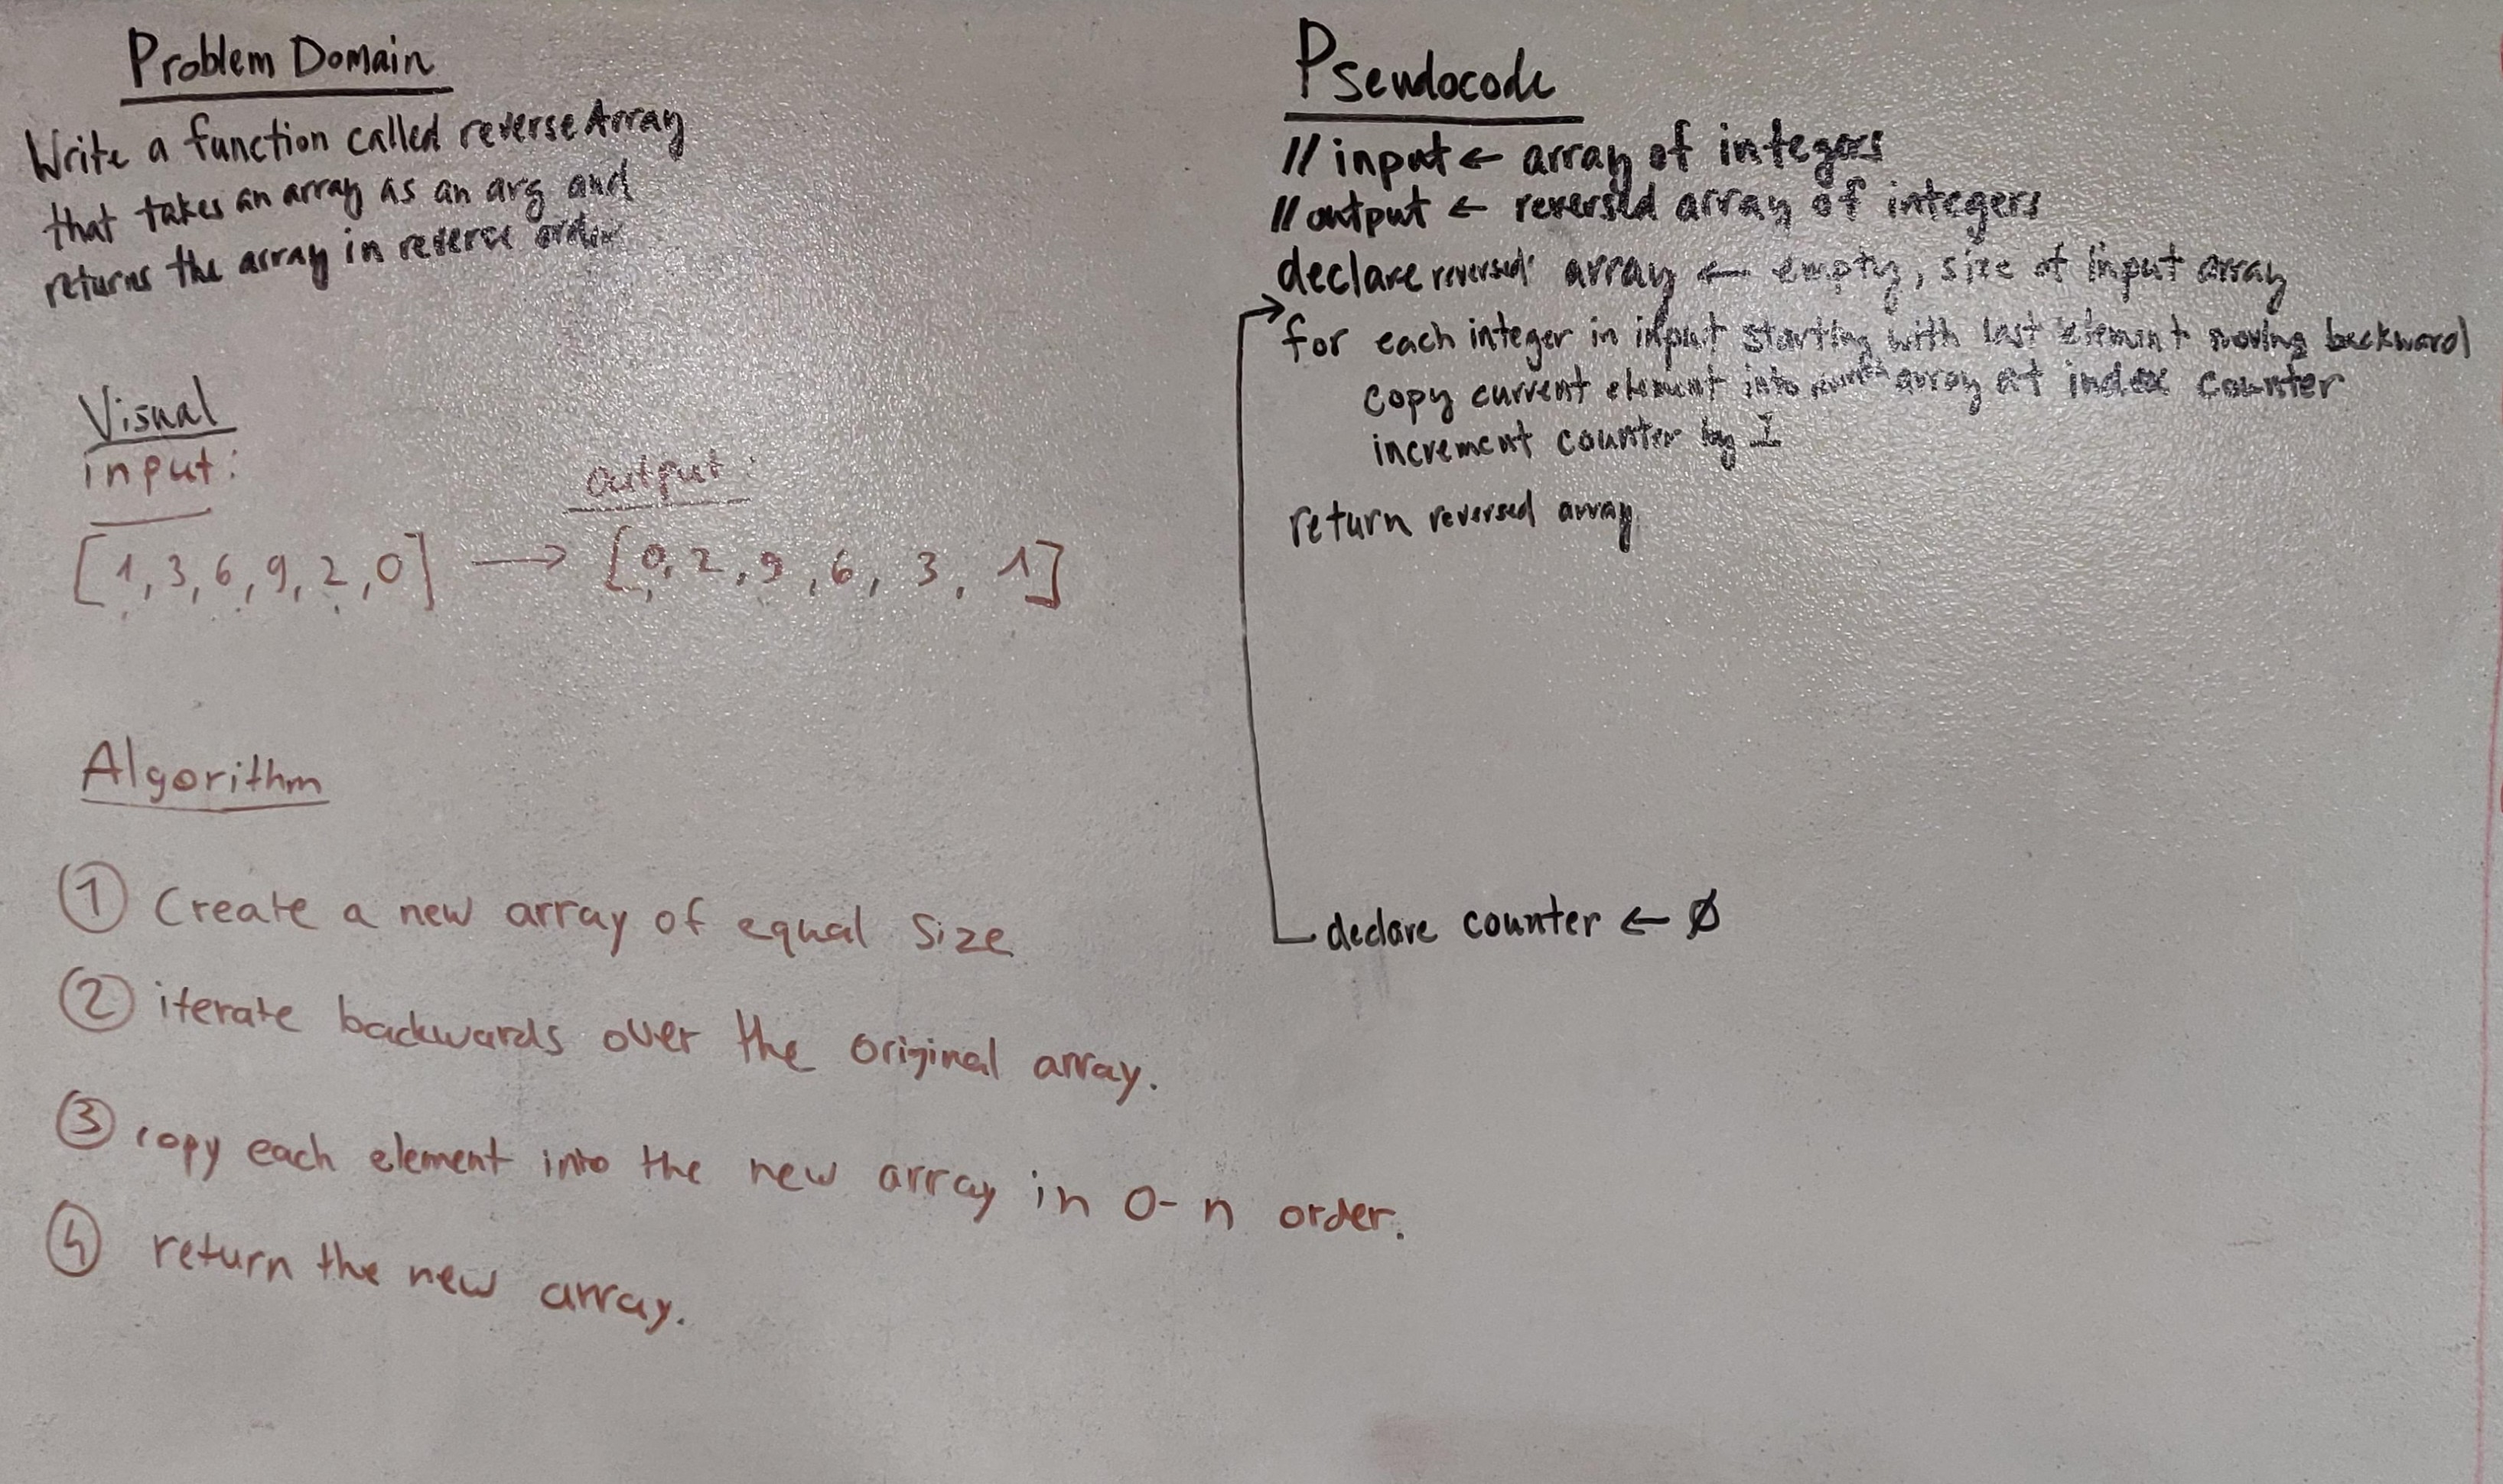 Problem Domain
Write a function called reverseArray
that takes an array as an arg and
returns the array in reverse order
Visual
input:
output:
[1,3,6,9,2,0] → [0,2,9,6,3,1]
Algorithm
① Create a new array of equal size
② iterate backwards over the original array.
③ copy each element into the new array in 0-n order.
④ return the new array.
Pseudocode
// input ← array of integers
// output ← reversed array of integers
declare reversed array ← empty, size of input array
for each integer in input starting with last element moving backward
copy current element into array at index counter
increment counter by 1
return reversed array
declare counter ← Ø